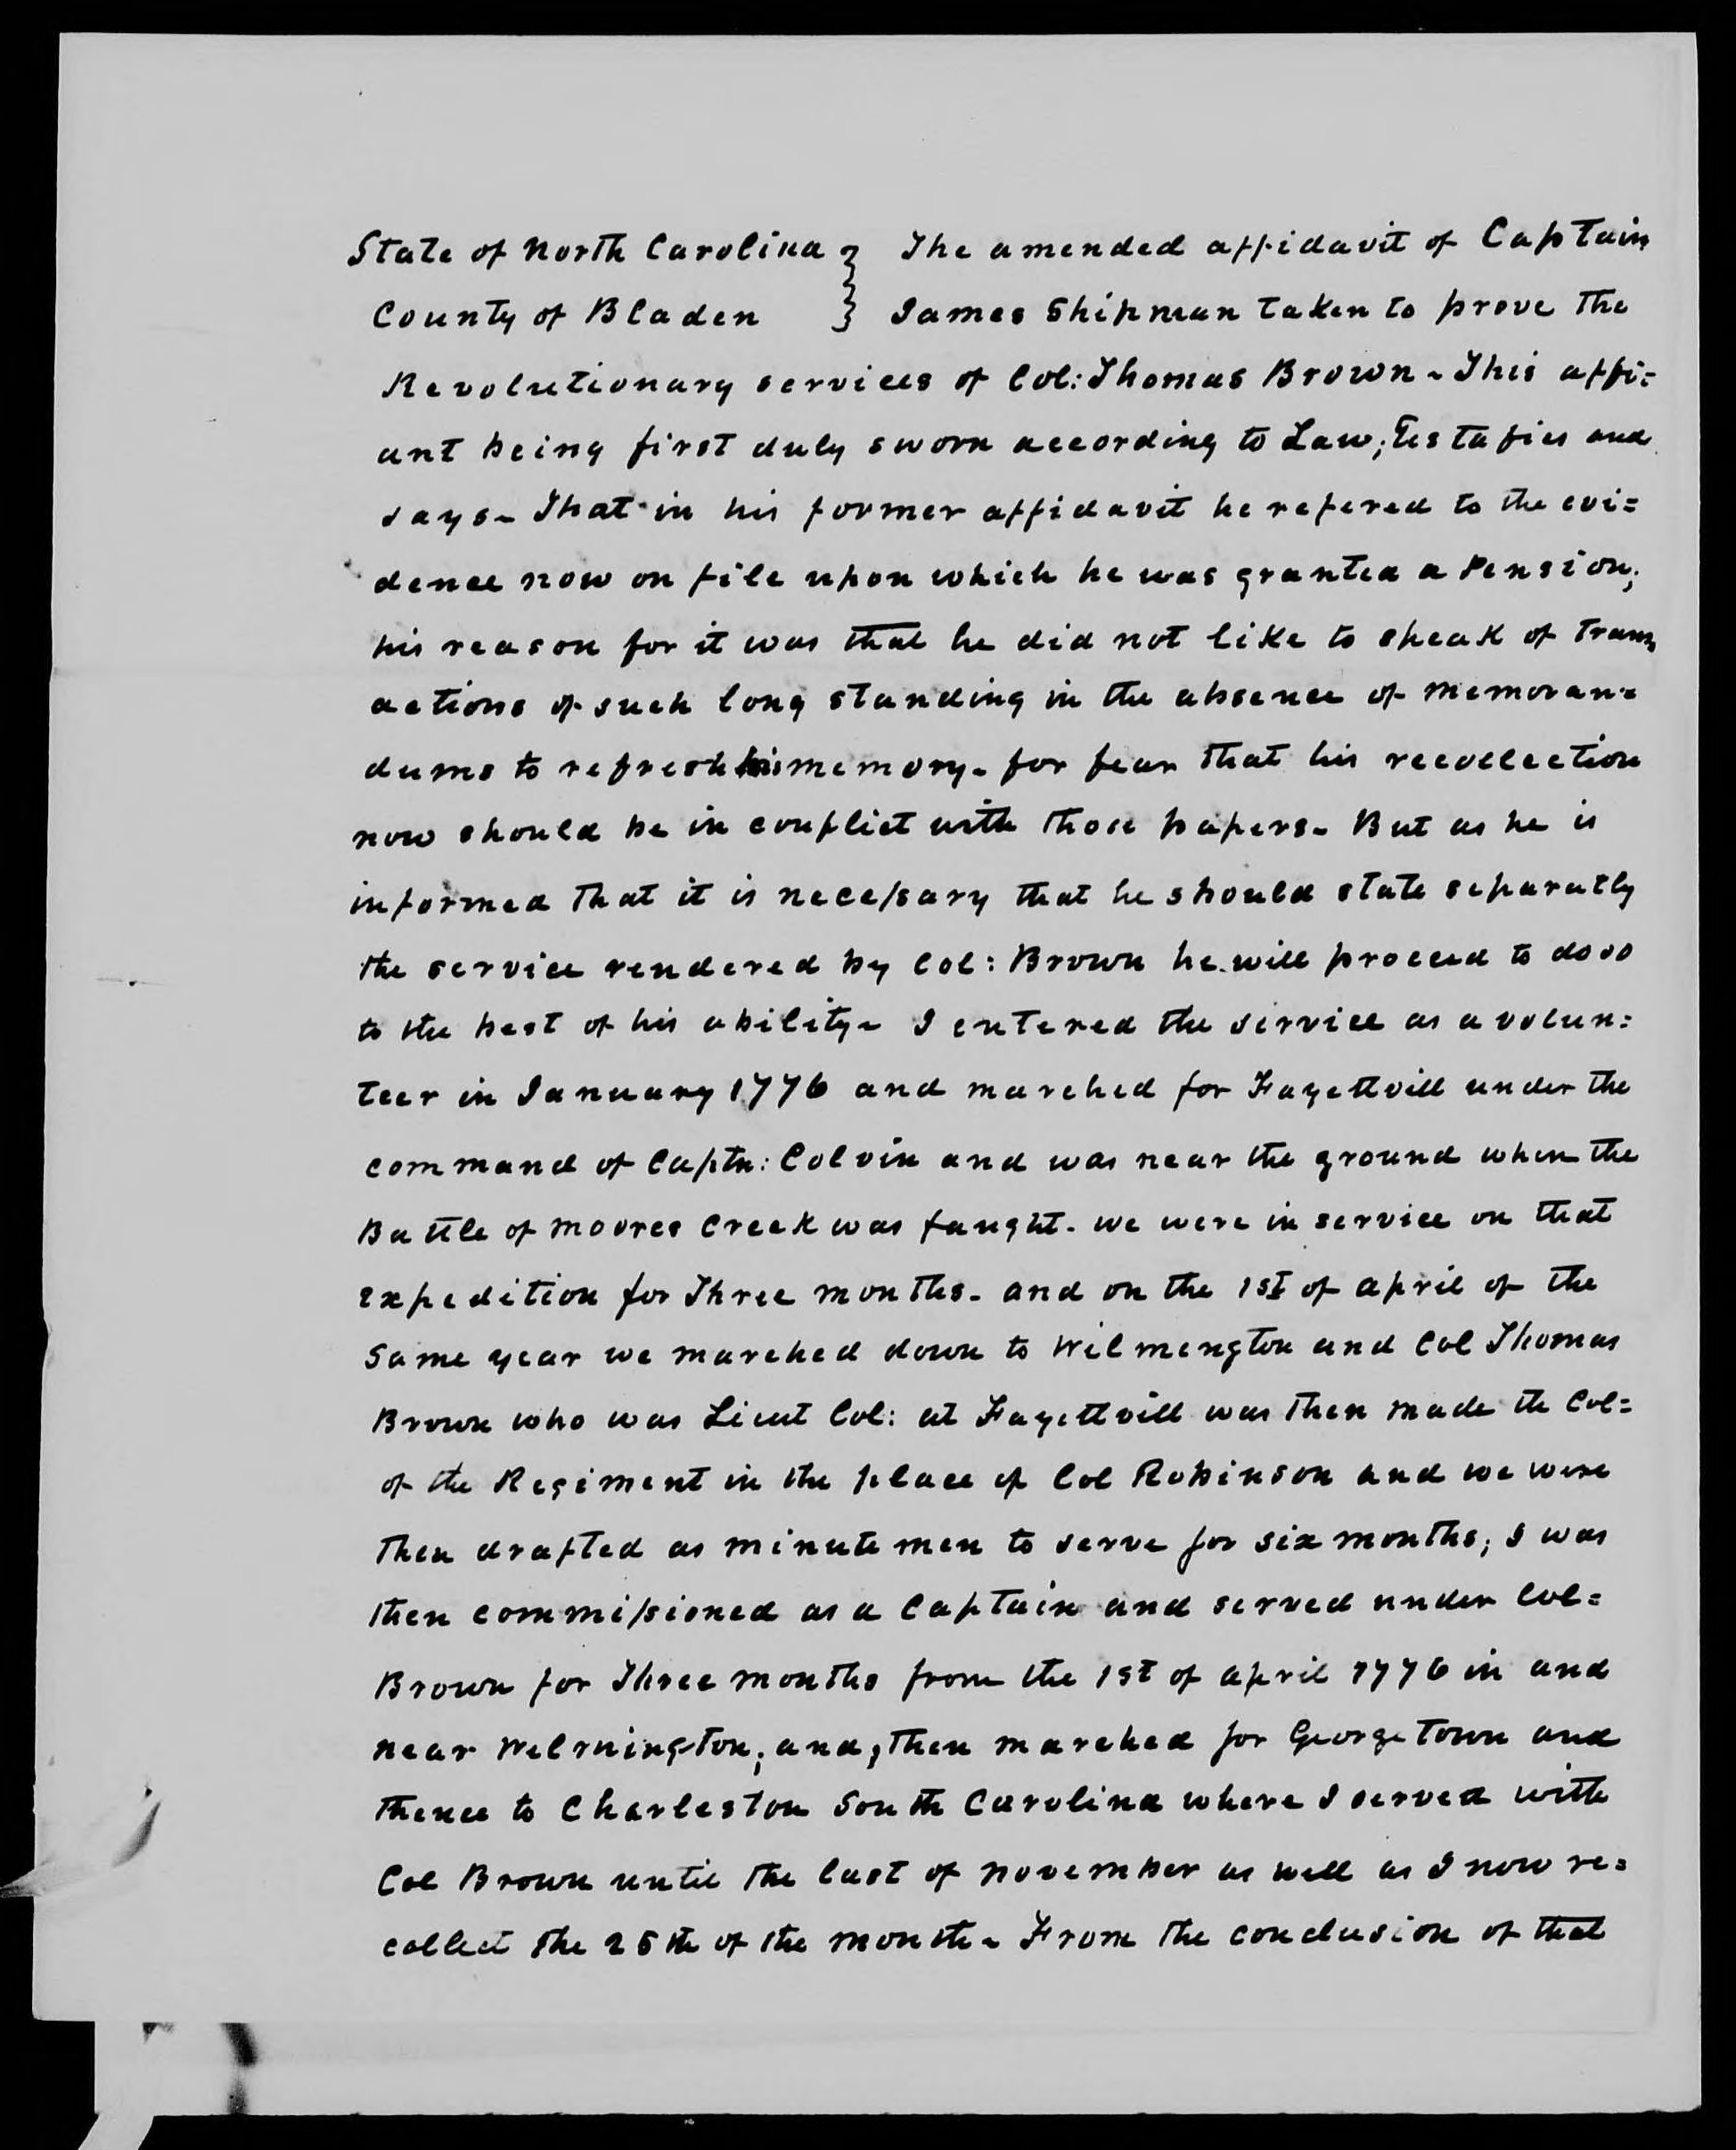 State of North Carolina } The amended affidavit of Captain
County of Bladen } James Shipman taken to prove the
Revolutionary services of Col: Thomas Brown - This affi=
ant being first duly sworn according to Law; Testafies and
says - That in his former affidavit he refered to the evi=
dence now on file upon which he was granted a Pension;
his reason for it was that he did not like to speak of trans
actions of such long standing in the absence of memoran=
dums to refresh his memory - for fear that his recollection
now should be in conflict with those papers - But as he is
informed that it is necessary that he should state separatly
the service rendered by Col: Brown he will proceed to do so
to the best of his ability - I entered the service as a volun=
teer in January 1776 and marched for Fayettvill under the
command of Captn: Colvin and was near the ground when the
Battle of Moores Creek was faught - we were in service on that
expedition for Three months - and on the 1st of april of the
same year we marched down to Wilmington and Col Thomas
Brown who was Lieut Col: at Fayettvill was then made the Col=
of the Regiment in the place of Col Robinson and we were
then drafted as minute men to serve for six months; I was
then commissioned as a Captain and served under Col=
Brown for Three months from the 1st of april 1776 in and
near Wilmington; and, then marched for George Town and
thence to Charleston South Carolina where I served with
Col Brown until the last of November as well as I now re=
collect the 25th of the month - From the conclusion of that